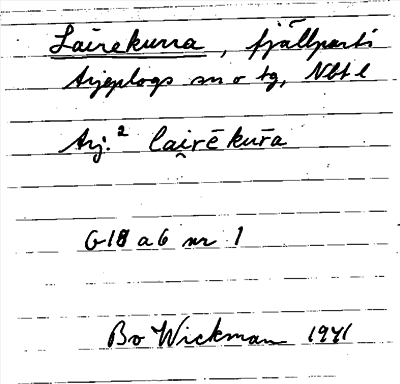 Lairekurra, fjällparti
Arjeplogs sn o tg, Nbt l
Arj.² lai̯rēkūra
G18 a6 nr 1
Bo Wickman 1941